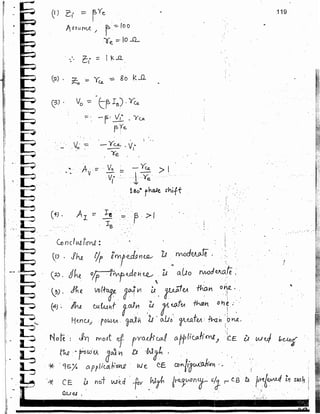 119
(1) Zi = βre
Assume, β = 100
re = 10 Ω
∴ Zi = 1 kΩ
(2). Zo = rce = 80 kΩ
(3). Vo = (-β IB) · rce
= -β · Vi · rce
βre
Vo = -rce · Vi
re
∴ Av = Vo = -rce > 1
Vi re
180° phase shift
(4). AI = = β > 1
IB
Conclusions:
(1). The i/p impedance is moderate.
(2). The o/p impedance is also moderate.
(3). The voltage gain is greater than one.
(4). The current gain is greater than one.
Hence, power gain is also greater than one.
Note: In most of practical applications, CE is used
power gain is high.
* 96% applications use CE configuration.
* CE is not used for high frequency CB is preferred in such
cases.